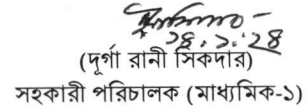 ২৪.১.২৪
(দূর্গা রানী সিকদার)
সহকারী পরিচালক (মাধ্যমিক-১)